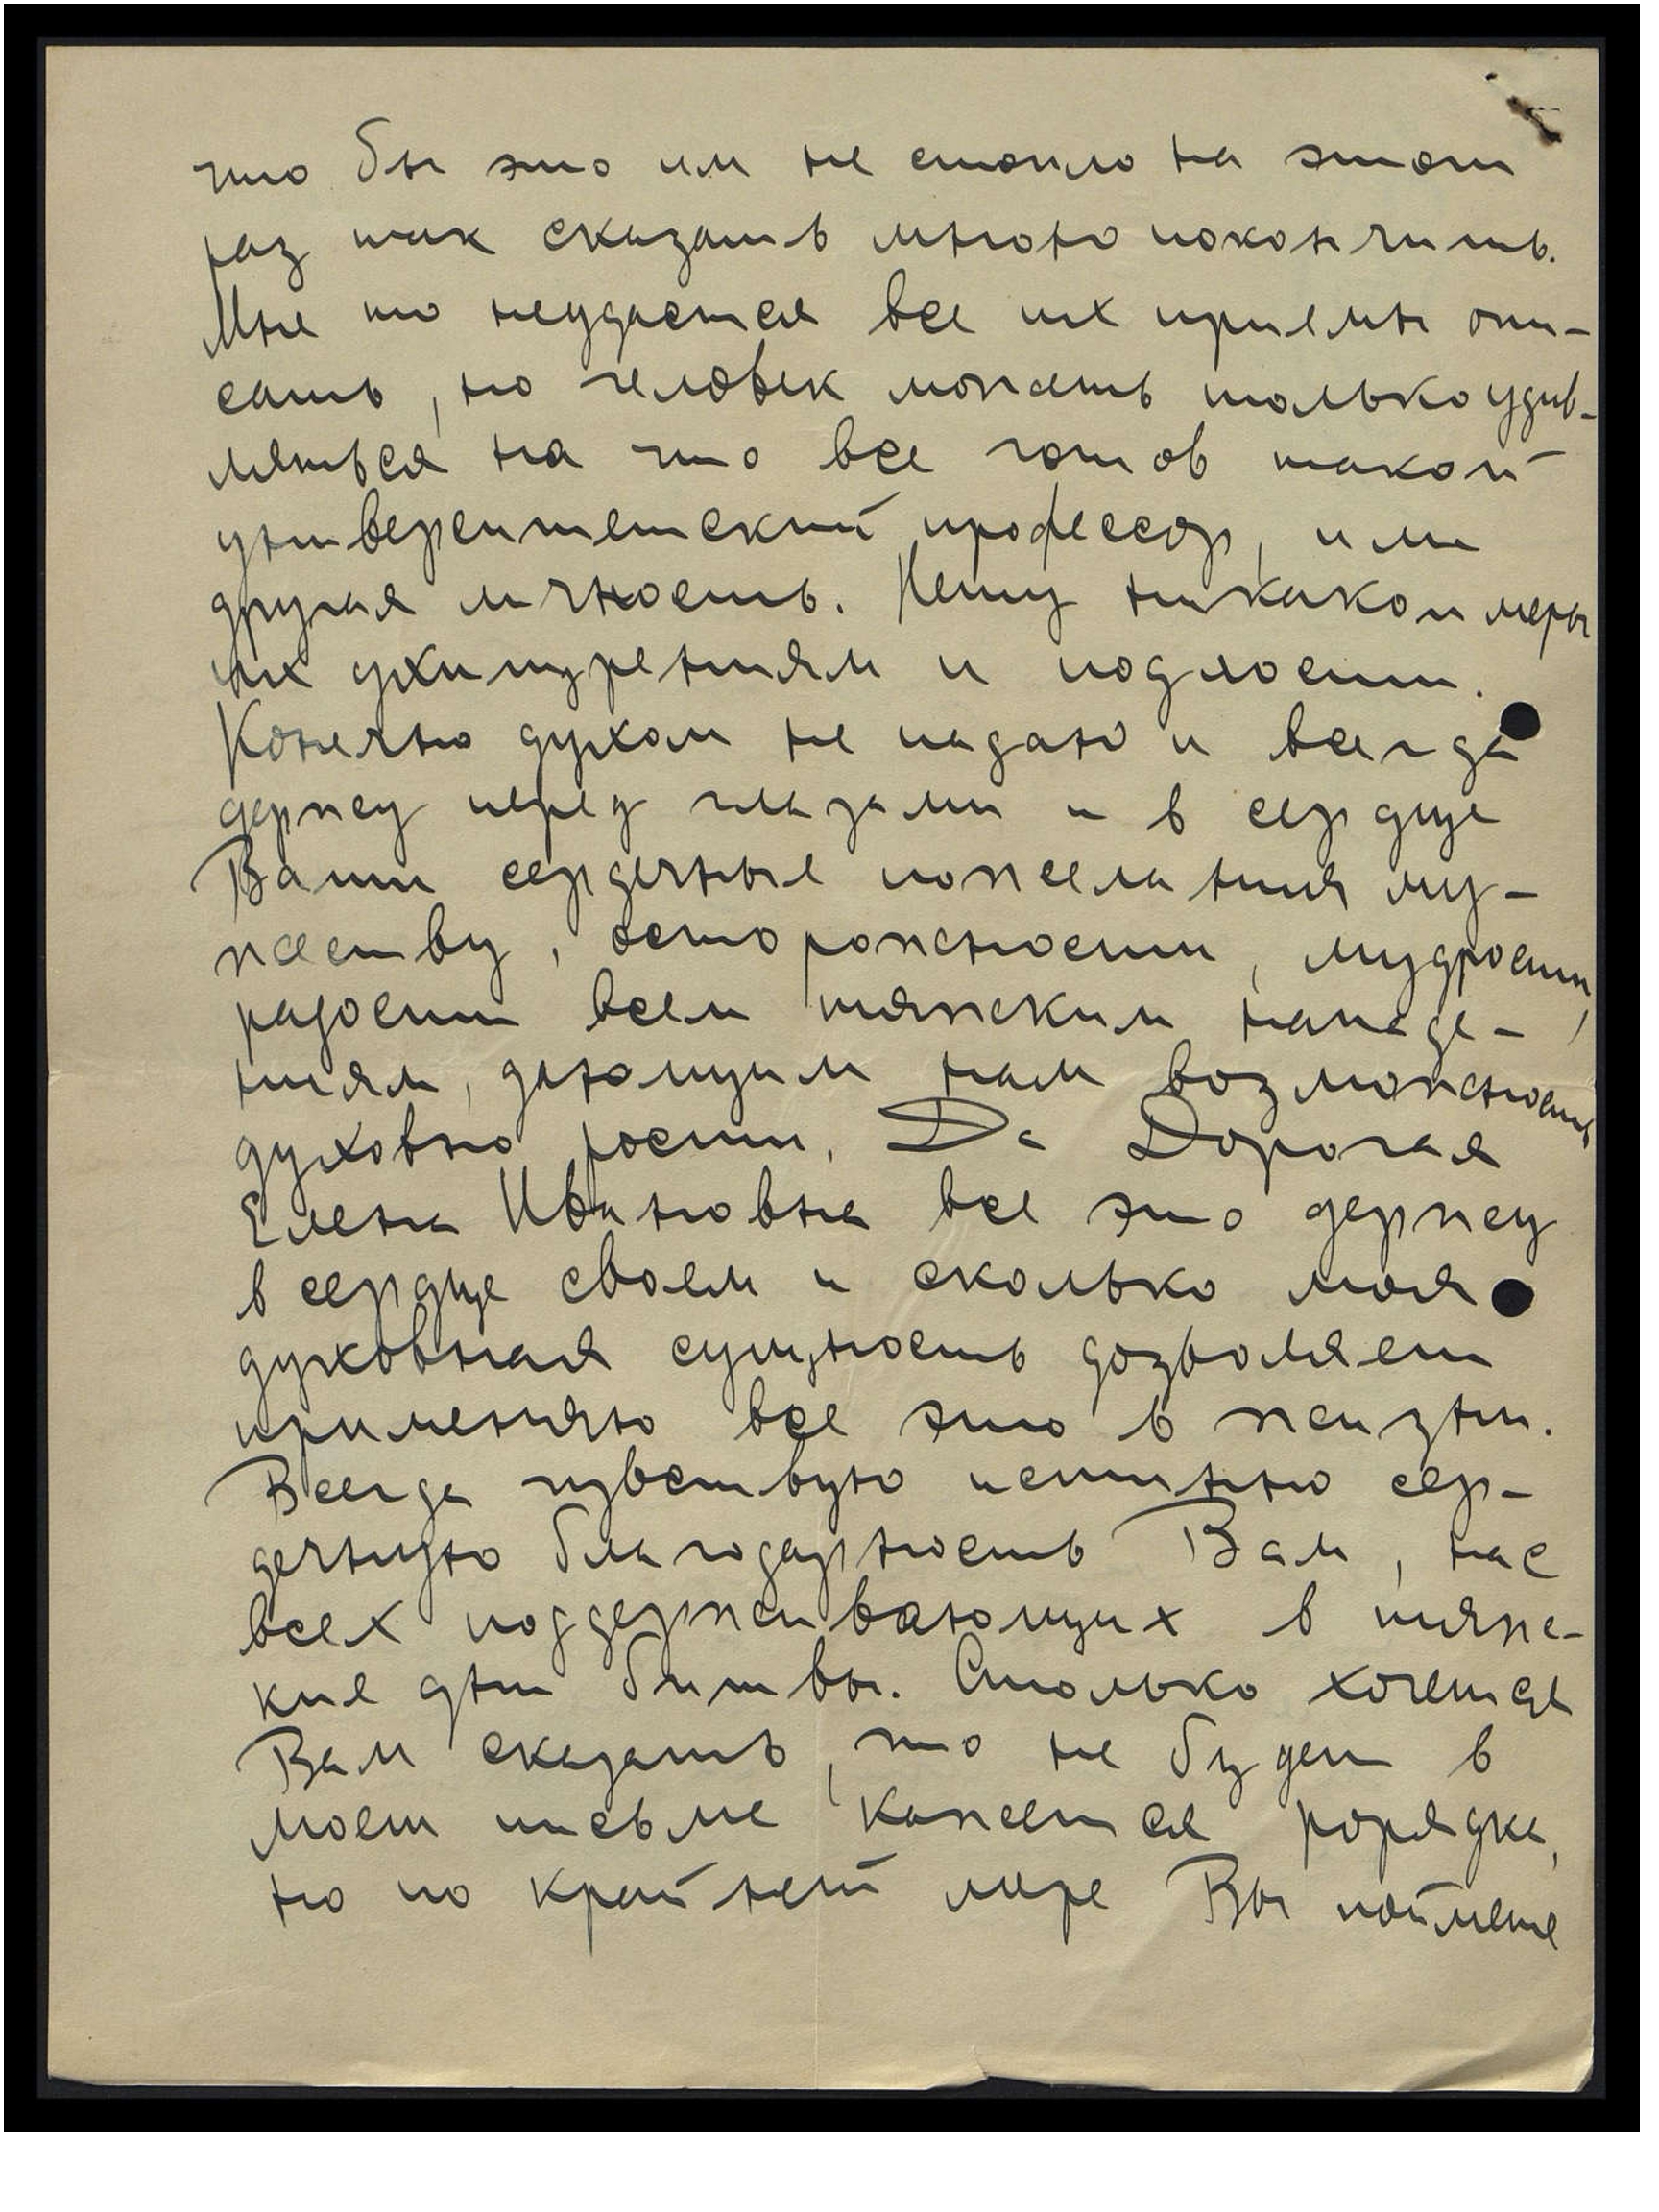 что бы это им не стоило на этот
раз так сказать много покончить.
Мне то неудается все их приемы опи-
сать, но человек можеть только удив-
ляться на что все готов такой
университетский профессор, или
другая личность. Нету никакой меры
их ухищрениям и подлости.
Конечно духом не падаю и всегда
держу перед глазами и в сердце
Ваши сердечные пожелания му-
жеству, осторожности, мудрости,
радости всем тяжским нападе-
ниям, дающим нам возможность
духовно рости. Да Дорогая
Елена Ивановна все это держу
в сердце своем и сколько моя
духовная сущность дозволяет
применяю все это в жизни.
Всегда чувствую истинно сер-
дечную благодарность Вам, нас
всех поддерживающих в тяже-
кие дни битвы. Столько хочется
Вам сказать, что не будет в
моем письме кажется порядка,
но по крайней мере Вы поймете